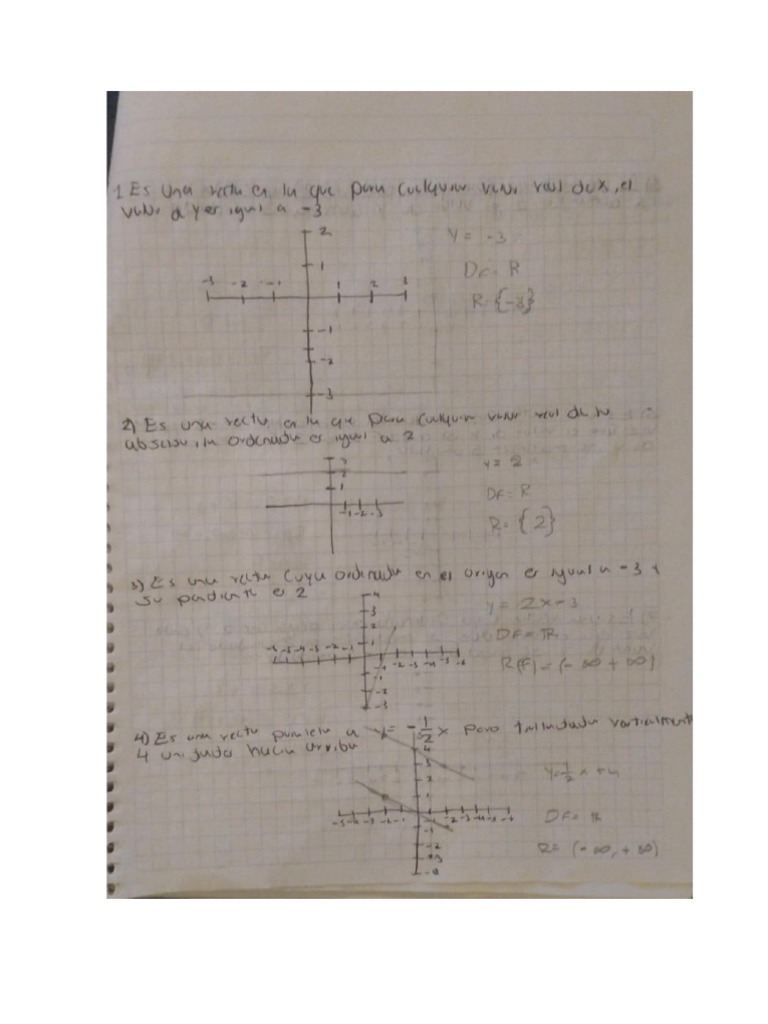 1 Es una recta en la que para cualquier valor real de x, el
valor de y es igual a -3
2
1
-3 -2 -1 1 2 3
-1
-2
-3
y = -3
DF = R
R = {-3}
2) Es una recta en la que para cualquier valor real de la
abscisa, la ordenada es igual a 2
2
1
-1 -2 -3
y = 2
DF = R
R = {2}
3) Es una recta cuya ordenada en el origen es igual a -3 y
su pendiente es 2
4
3
2
1
-2 -1
-1 -2 -3 -4 -5 -6
-2
-3
y = 2x-3
DF = R
R(F) = (-∞ +∞)
4) Es una recta paralela a y = -1/2 x pero trasladada verticalmente
4 unidades hacia arriba
4
3
2
1
-5 -4 -3 -2 -1 -2 -3 -4 -5
-1
-2
DF = R
R = (-∞, +∞)